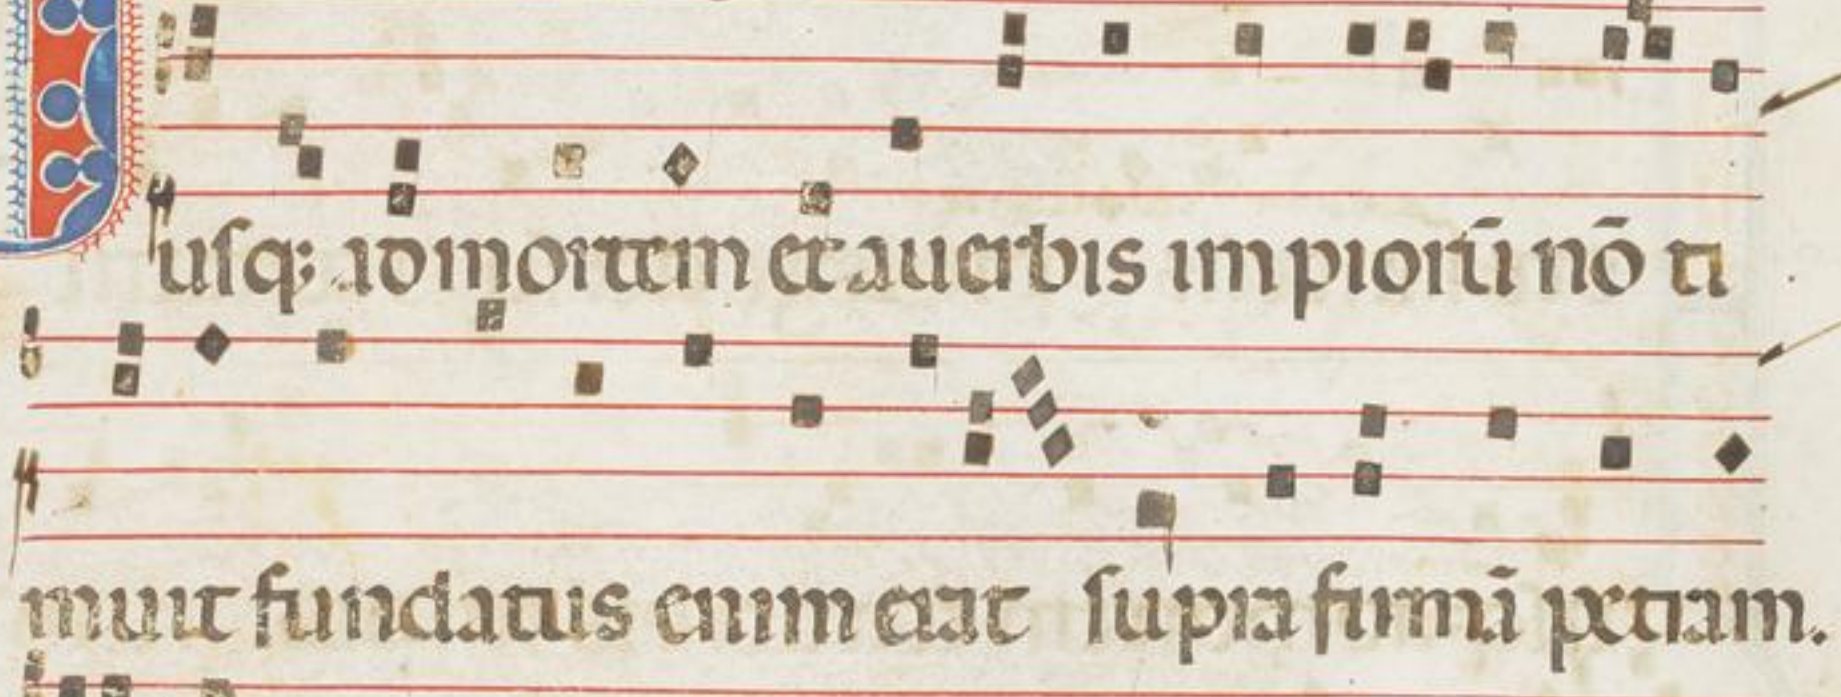 usq; ad mortem et a uerbis impiorū nō ti
muit fundatus enim erat supra firmā petram.